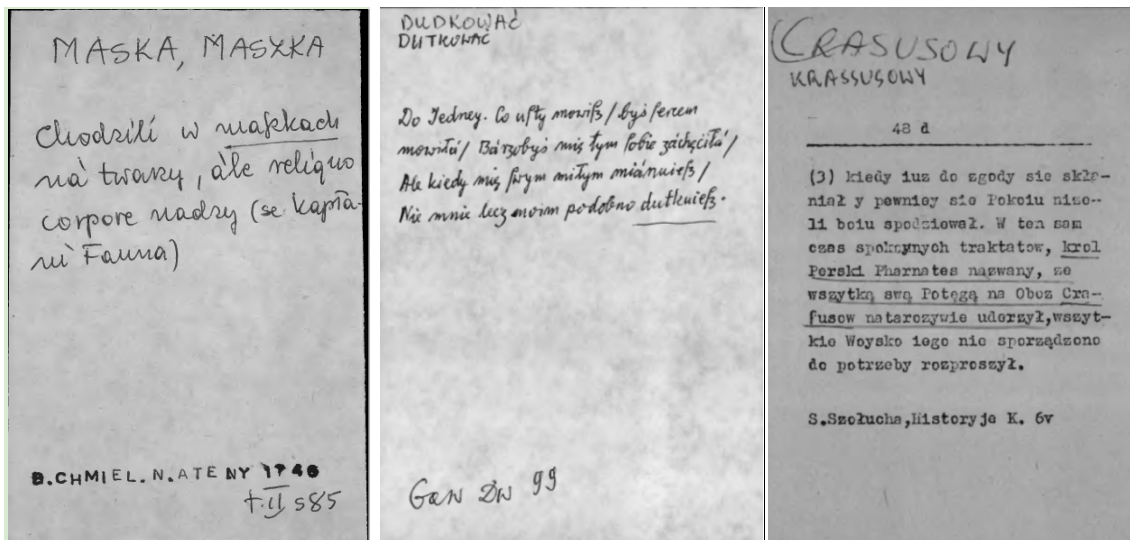 MASKA, MASZKA
Chodzili w maſkach
ná twarzy, ále reliquo
corpore nadzy (se kapłá-
ni Fauna)
B.CHMIEL. N. ATENY 1746
t.II s 85
DUDKOWAĆ
DUTKOWAĆ
Do Jedney. Co uſty mowiſz / byś ſercem
mowiłá / Bárzobyś mię tym ſobie záchęciłá /
Ale kiedy mię ſwym miłym miánuieſz /
Nie mnie lecz moim podobno dutkuieſz.
Gaw Dw 99
CRASUSOWY
KRASSUSOWY
48 d
(3) kiedy iuz do zgody sie skła-
niał y pewniey sie Pokoiu niże-
li boiu spodziewał. W ten sam
czas spokoynych traktatow, krol
Perski Pharnates nazwany, ze
wszytką swą Potęgą na Oboz Cra-
fusow natarczywie uderzył,wszyt-
kie Woysko iego nie sporządzone
do potrzeby rozproszył.
S.Szołucha,Historyje K. 6v